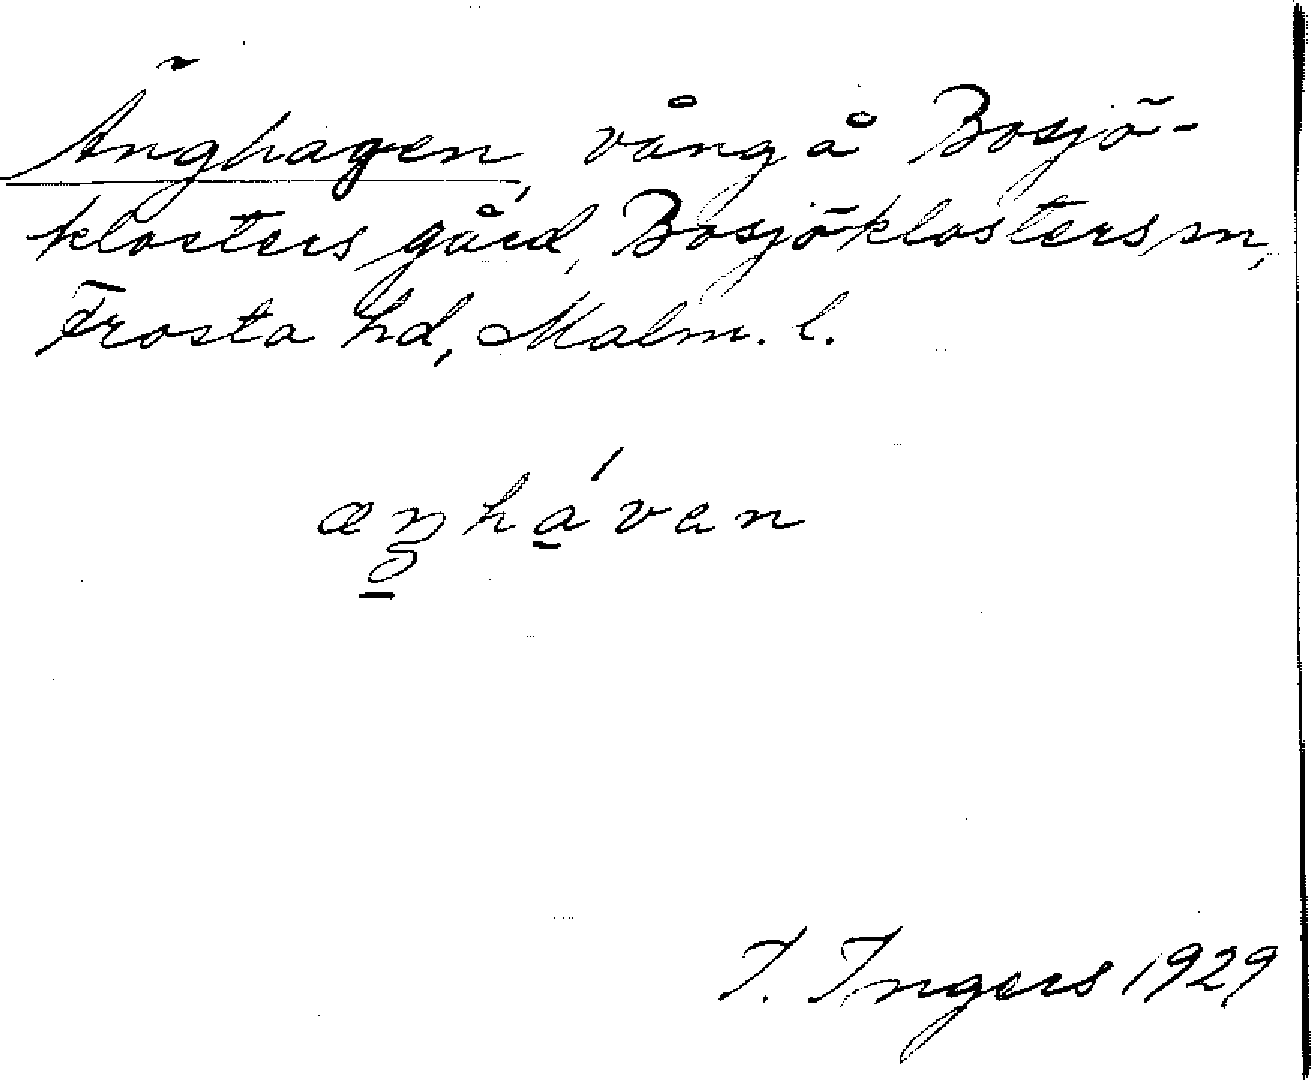 Änghagen, vång å Bosjö-
klosters gård, Bosjöklosters sn,
Frosta hd, Malm. l.
æŋhávan
I. Ingers 1929